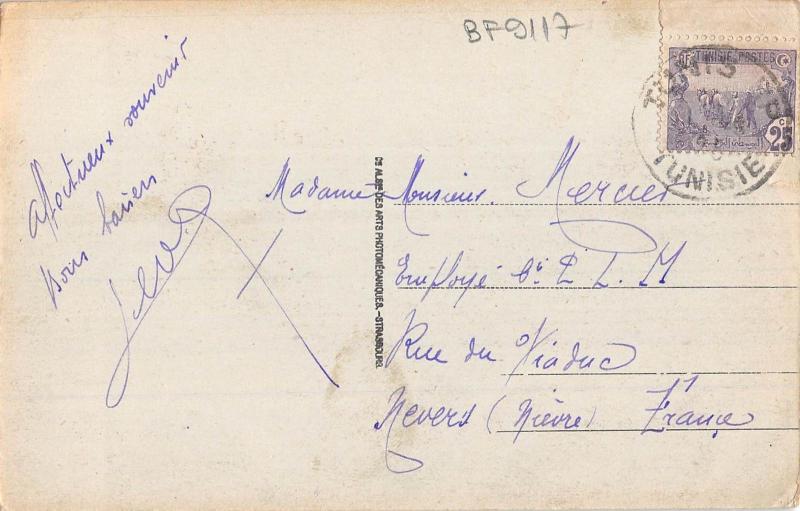 BF9117
RF TUNISIE POSTES
25 c
TUNIS
TUNISIE
Affectueux souvenir
bons baisers
Cie ALSne DES ARTS PHOTOMÉCANIQUES. - STRASBOURG.
Madame Monsieur Mercier
Employé Cie P. L. M
Rue du Viaduc
Nevers (Nièvre) France